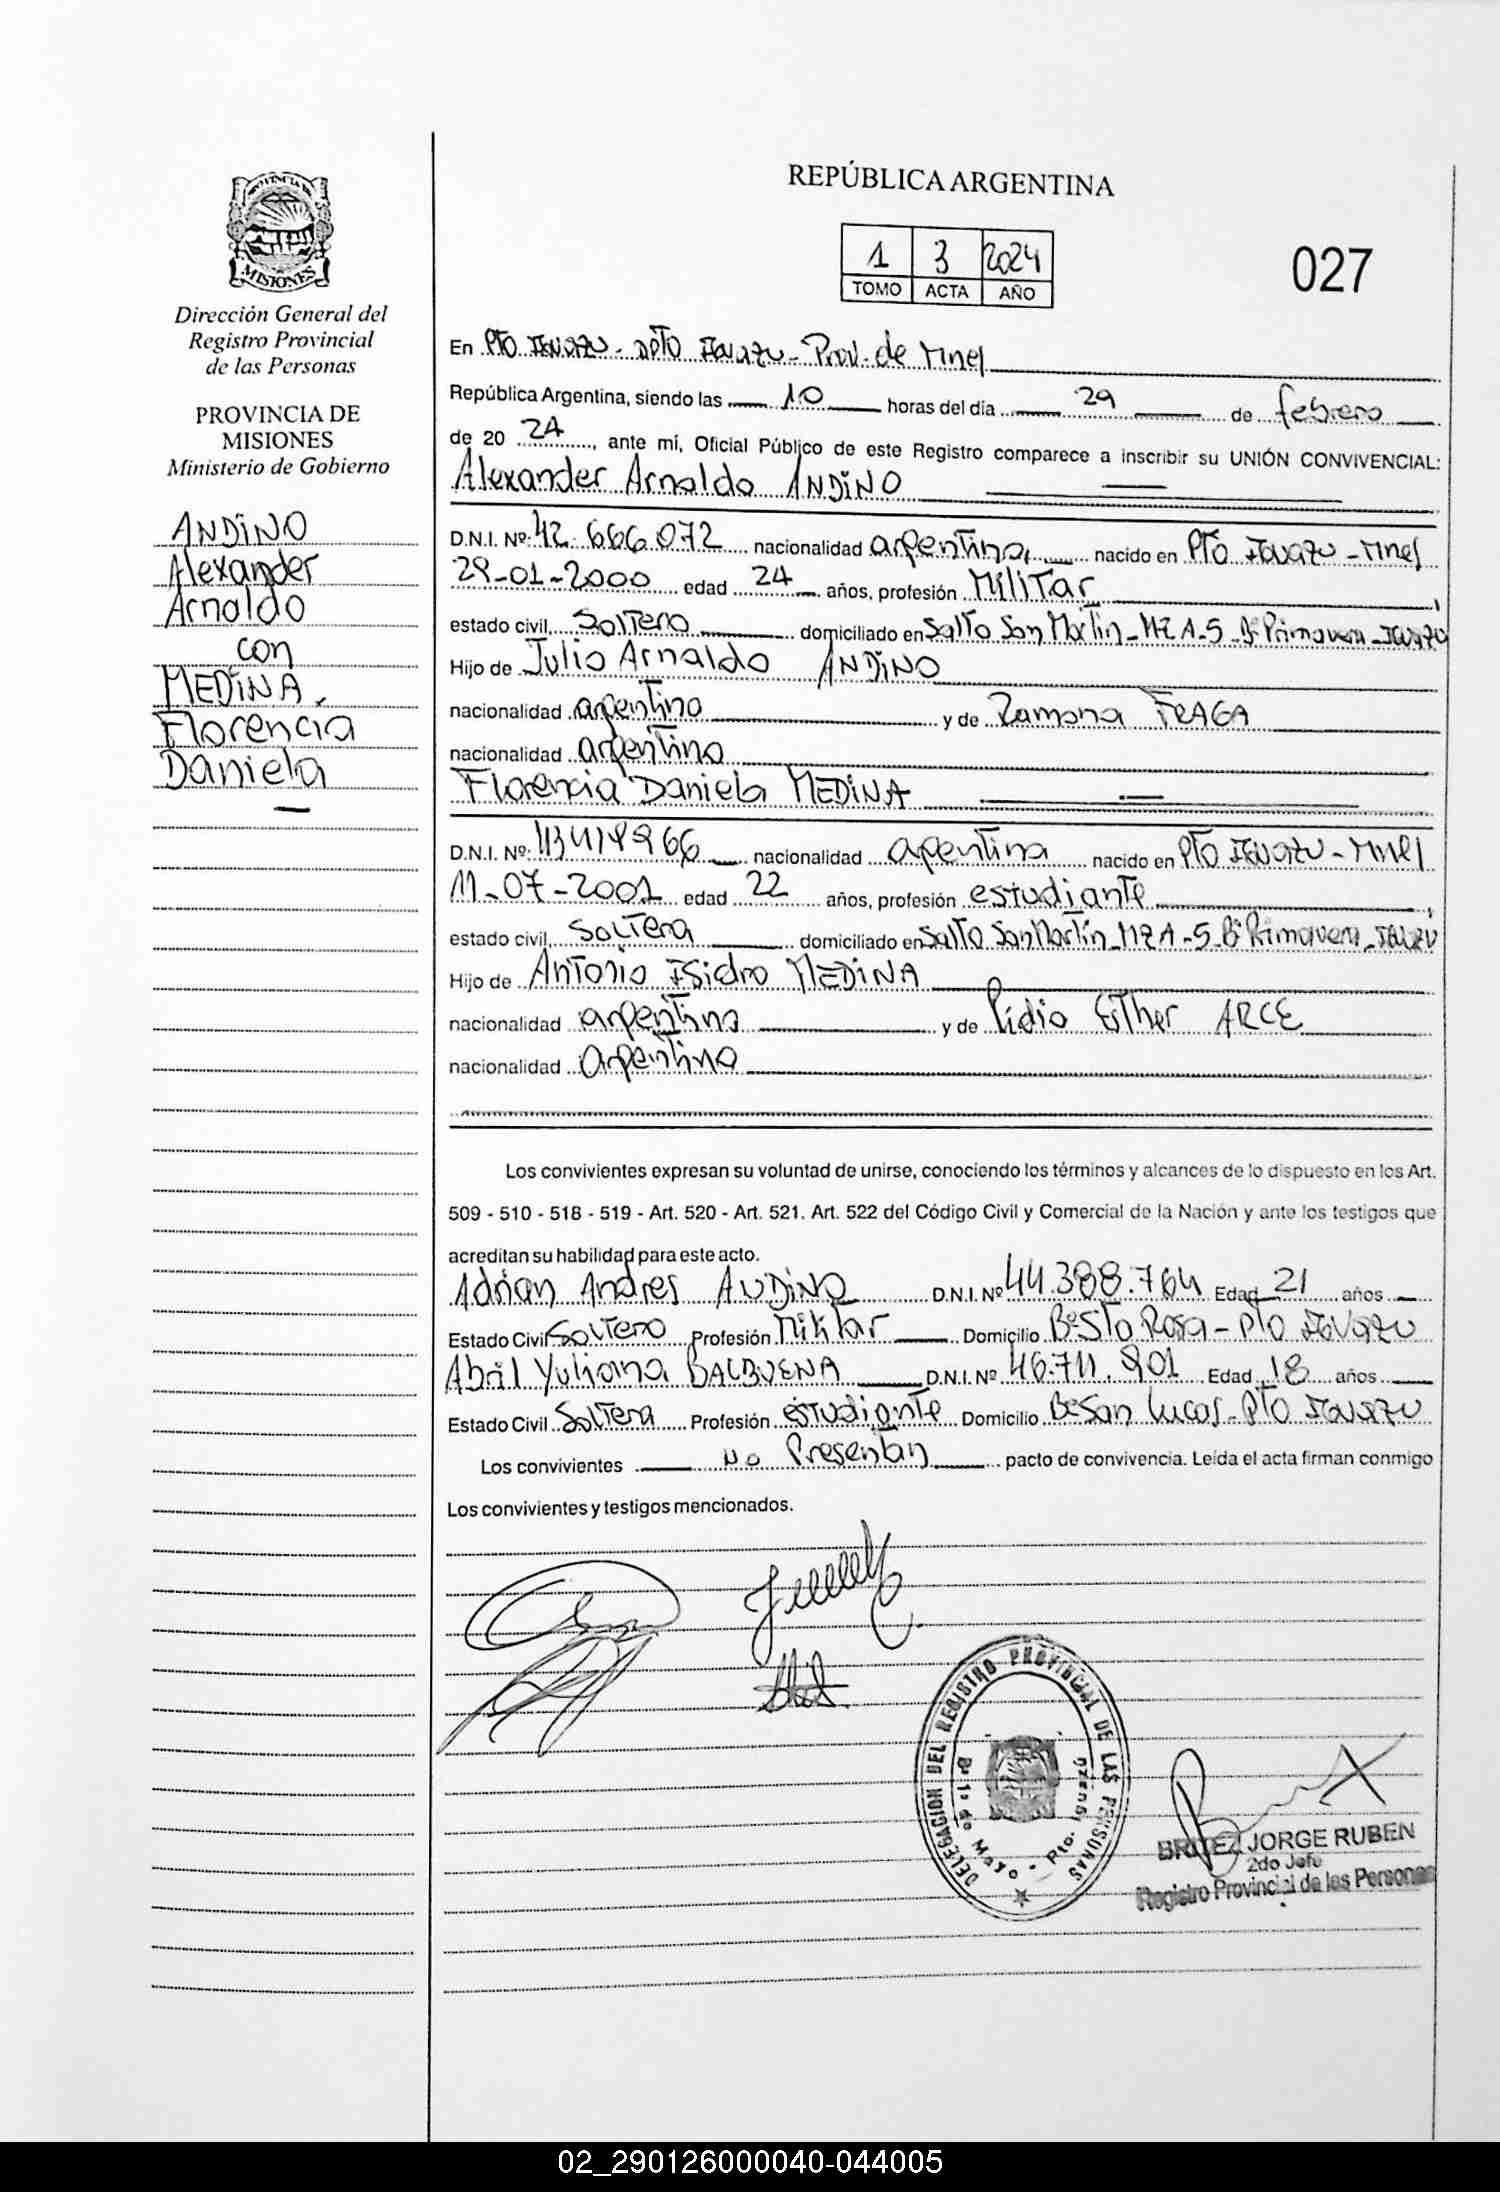 PROVINCIA DE
MISIONES
Dirección General del
Registro Provincial
de las Personas
PROVINCIA DE
MISIONES
Ministerio de Gobierno
ANDINO
Alexander
Arnaldo
con
MEDINA,
Florencia
Daniela
REPÚBLICA ARGENTINA
1 3 2024
TOMO ACTA AÑO
027
En Pto Iguazu - Dpto Iguazu - Prov. de Mnes
República Argentina, siendo las 10 horas del día 29 de febrero
de 20 24, ante mí, Oficial Público de este Registro comparece a inscribir su UNIÓN CONVIVENCIAL:
Alexander Arnaldo ANDINO
D.N.I. Nº: 42.666.072 nacionalidad argentino, nacido en Pto Iguazu - Mnes
-01-2000 edad 24 años, profesión Militar,
estado civil, Soltero domiciliado en Salto San Martin - MZ A-5 Bº Primavera - Iguazu
Hijo de Julio Arnaldo ANDINO
nacionalidad argentino y de Ramona FRAGA
nacionalidad argentina
Florencia Daniela MEDINA
D.N.I. Nº: nacionalidad argentina nacido en Pto Iguazu - Mnes
11-07-2001 edad 22 años, profesión estudiante,
estado civil, Soltera domiciliado en Salto San Martin - MZ A-5 Bº Primavera - Iguazu
Hijo de Antonio Isidro MEDINA
nacionalidad argentino y de Lidia Esther ARCE
nacionalidad argentina
Los convivientes expresan su voluntad de unirse, conociendo los términos y alcances de lo dispuesto en los Art.
509 - 510 - 518 - 519 - Art. 520 - Art. 521. Art. 522 del Código Civil y Comercial de la Nación y ante los testigos que
acreditan su habilidad para este acto.
Adrian Andres ANDINO D.N.I. Nº 44.388.764 Edad 21 años
Estado Civil Soltero Profesión Militar Domicilio Bº Sta Rosa - Pto Iguazu
Abril Yuliana BALBUENA D.N.I. Nº 46.711.901 Edad 18 años
Estado Civil Soltera Profesión estudiante Domicilio Bº San Lucas - Pto Iguazu
Los convivientes No Presentan pacto de convivencia. Leída el acta firman conmigo
Los convivientes y testigos mencionados.
DELEGACION DEL REGISTRO PROVINCIAL DE LAS PERSONAS
Bº 1º de Mayo - Pto. Iguazú
BRITEZ JORGE RUBEN
2do Jefe
Registro Provincial de las Personas
02_290126000040-044005